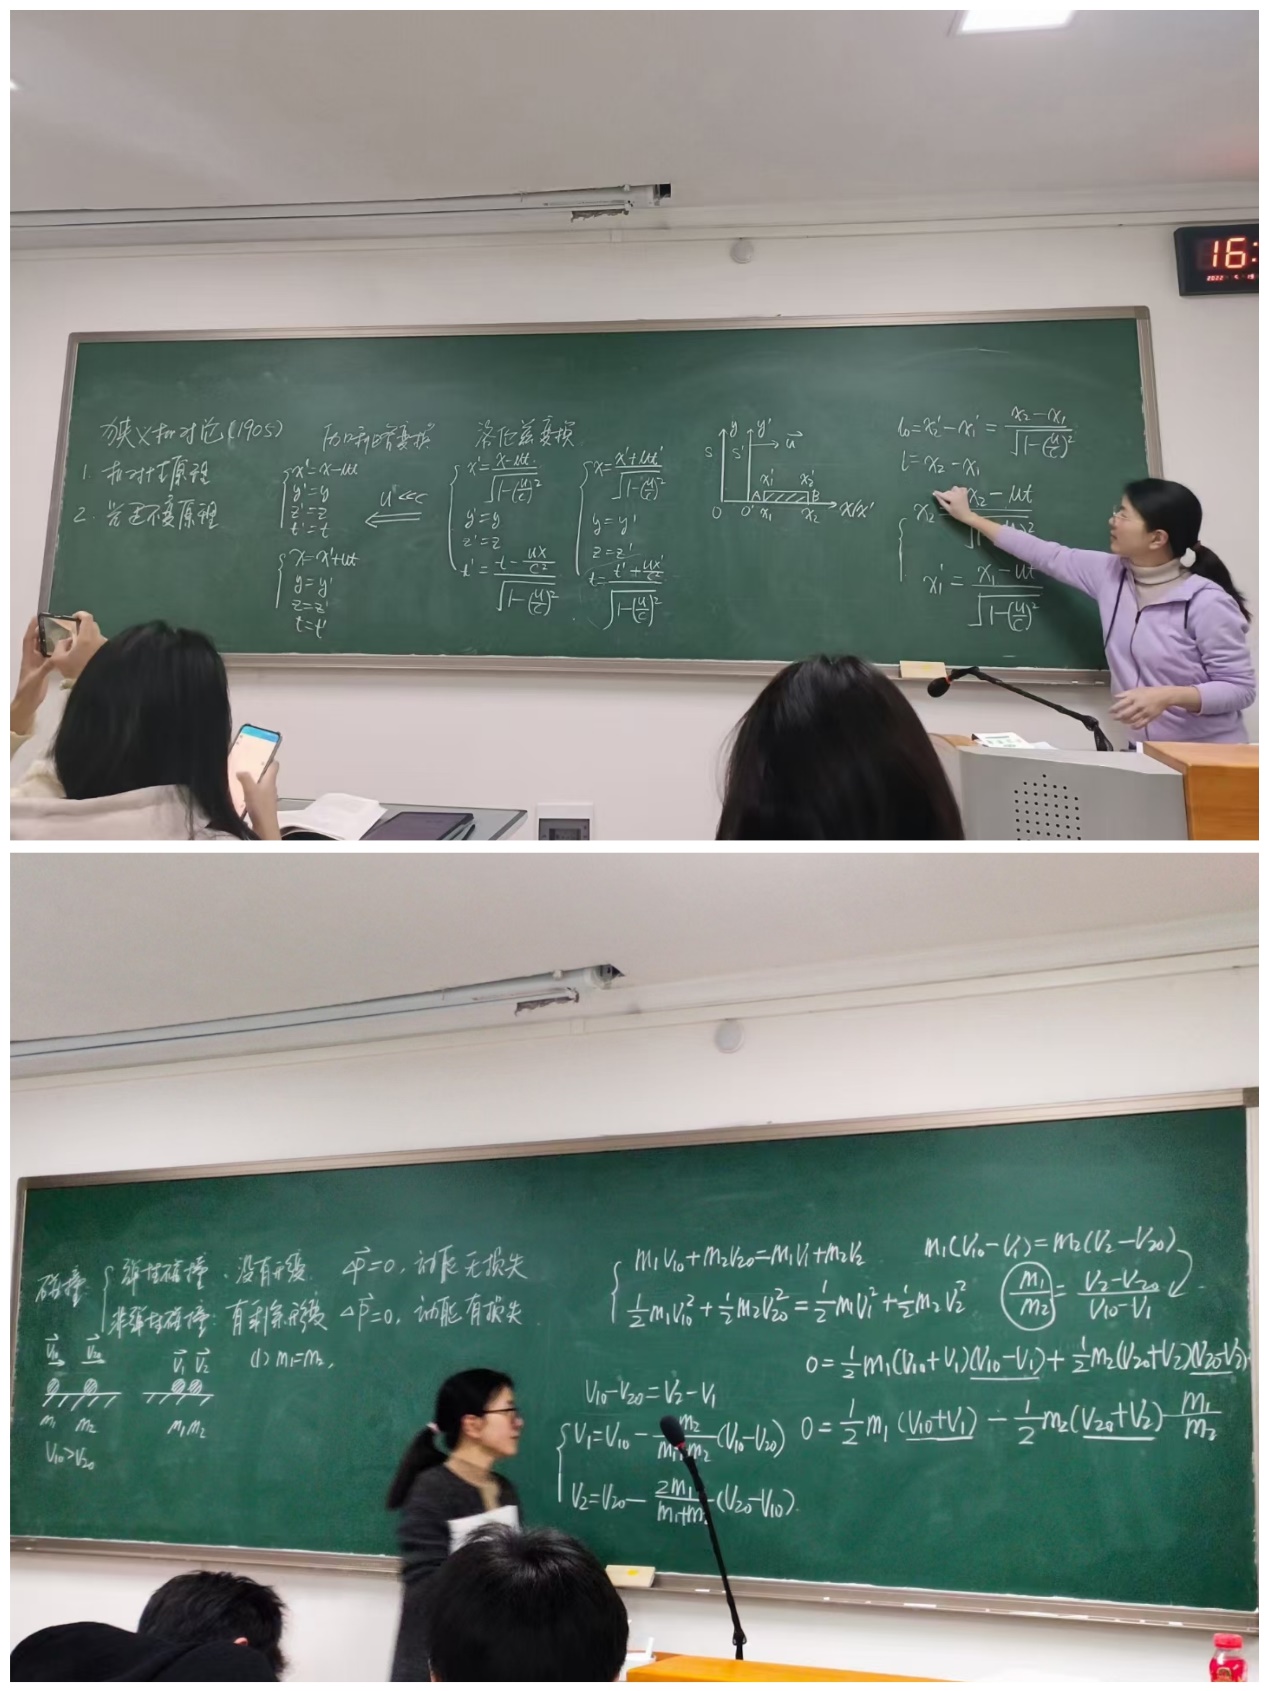 狭义相对论(1905)
1. 相对性原理
2. 光速不变原理
伽利略变换
x'=x-ut
y'=y
z'=z
t'=t
x=x'+ut
y=y'
z=z'
t=t'
u<<c
洛伦兹变换
x'=\frac{x-ut}{\sqrt{1-(\frac{u}{c})^2}}
y'=y
z'=z
t'=\frac{t-\frac{ux}{c^2}}{\sqrt{1-(\frac{u}{c})^2}}
x=\frac{x'+ut'}{\sqrt{1-(\frac{u}{c})^2}}
y=y'
z=z'
t=\frac{t'+\frac{ux'}{c^2}}{\sqrt{1-(\frac{u}{c})^2}}
y y'
S S' \vec{u}
x_1' x_2'
A B x/x'
O O' x_1 x_2
l_0=x_2'-x_1'=\frac{x_2-x_1}{\sqrt{1-(\frac{u}{c})^2}}
l=x_2-x_1
x_2 x_2-ut
x_1'=\frac{x_1-ut}{\sqrt{1-(\frac{u}{c})^2}}
16:
2022
碰撞
弹性碰撞:没有形变 △\vec{P}=0,动能无损失
非弹性碰撞:有剩余形变 △\vec{P}=0,动能有损失
\vec{V}_{10} \vec{V}_{20} \vec{V}_1 \vec{V}_2
m_1 m_2 m_1 m_2
V_{10}>V_{20}
(1) m_1=m_2,
m_1V_{10}+m_2V_{20}=m_1V_1+m_2V_2
\frac{1}{2}m_1V_{10}^2+\frac{1}{2}m_2V_{20}^2=\frac{1}{2}m_1V_1^2+\frac{1}{2}m_2V_2^2
m_1(V_{10}-V_1)=m_2(V_2-V_{20})
\frac{m_1}{m_2}=\frac{V_2-V_{20}}{V_{10}-V_1}
0=\frac{1}{2}m_1(V_{10}+V_1)(V_{10}-V_1)+\frac{1}{2}m_2(V_{20}+V_2)(V_{20}-V_2)
0=\frac{1}{2}m_1(V_{10}+V_1)-\frac{1}{2}m_2(V_{20}+V_2)\frac{m_1}{m_2}
V_{10}-V_{20}=V_2-V_1
V_1=V_{10}-\frac{m_2}{m_1+m_2}(V_{10}-V_{20})
V_2=V_{20}-\frac{2m_1}{m_1+m_2}(V_{20}-V_{10})